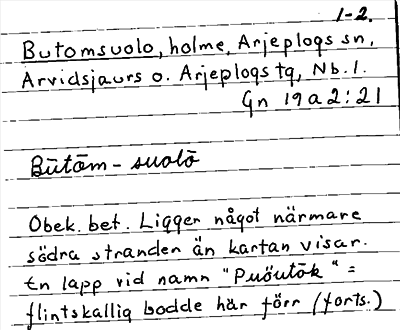 1-2.
Butomsuolo, holme, Arjeplogs sn,
Arvidsjaurs o. Arjeplogs tg, Nb. l.
Gn 19a2:21
Būtōm - suolō
Obek. bet. Ligger något närmare
södra stranden än kartan visar.
En lapp vid namn "Puöutōk" =
flintskallig bodde här förr (forts.)